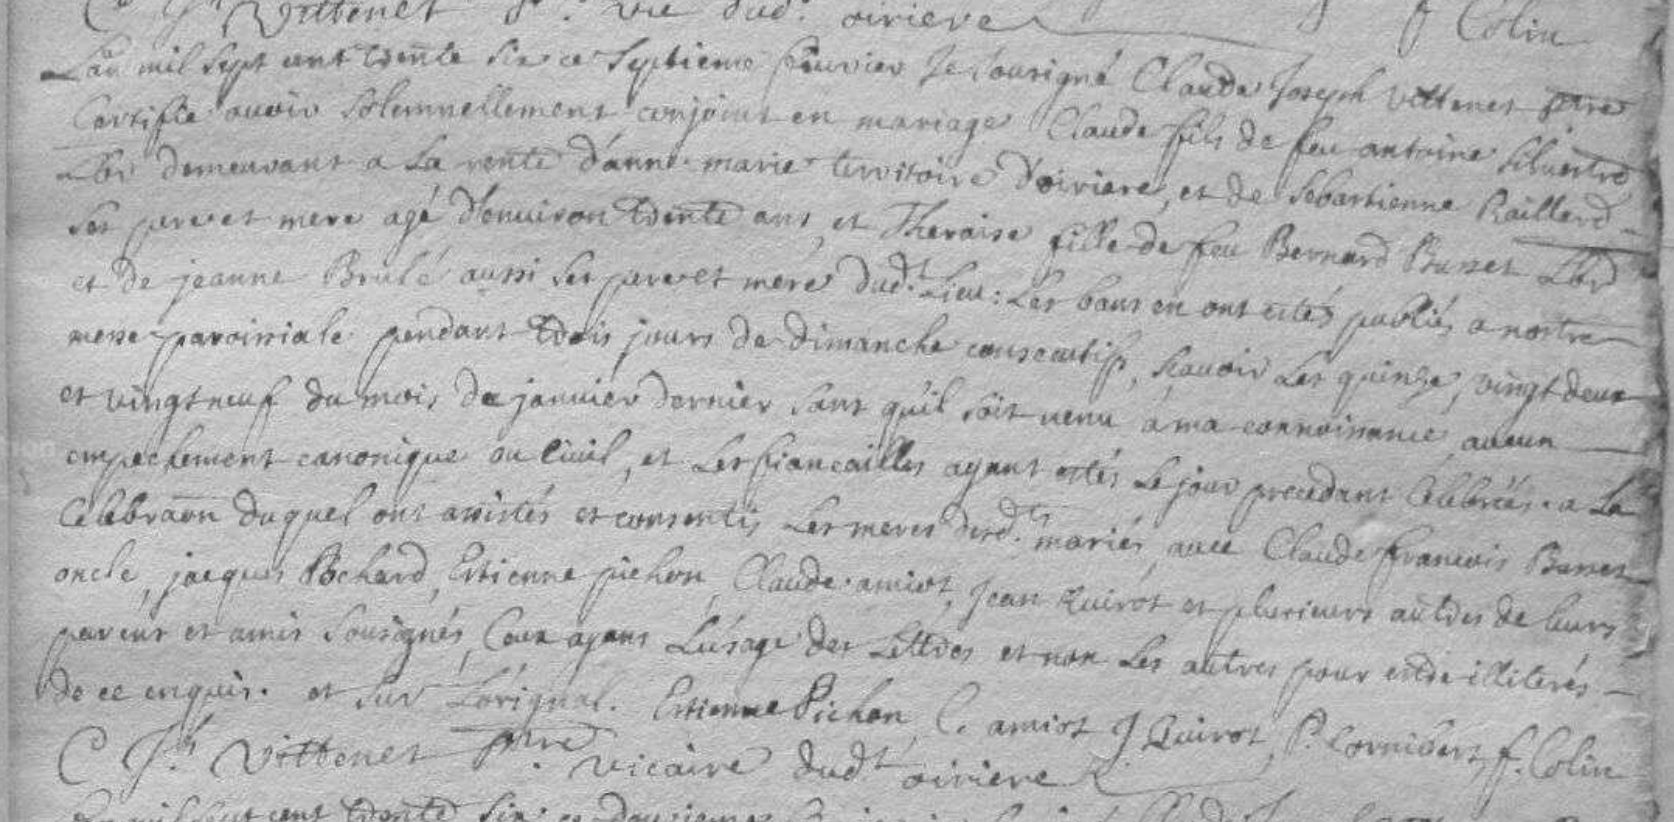 C J.h Vittenet p.tre vic dud.t oiriere f Colin
L'an mil sept cent trente six ce Septieme feuvrier Je sousigné Claude Joseph Vittenet ptre
Certifie avoir solemnellement conjoint en mariage Claude fils de feu antoine silvestre
lbr demeurant a La rente d'anne marie territoire d'oiriere, et de sebastienne Raillard
ses pere et mere agé d'enuiron trente ans, et Theraise fille de feu Bernard Busset Lbr
et de jeanne Brulé aussi ses pere et mere dud.t Lieu: Les bans en ont estés publiés a nostre
messe paroissiale pendant trois jours de dimanche consecutifs, scauoir Les quinze, vingt deux
et vingt neuf du mois de januier dernier sans qu'il soit venu a ma connoissance aucun
empechement canonique ou Ciuil, et Les fiancailles ayant estés Le jour precedant Celebrées. a La
Celebraon duquel ont assistés et consentis Les meres desd.ts mariés auec Claude francois Busset
oncle, jacques Bochard, Estienne pichon, Claude amiot, Jean Quirot et plusieurs autres de leurs
parens et amis Sousignés, Ceux ayans L'usage des Lettres et non Les autres pour estre illiterés
de ce enquis. et sur L'orignal. Estienne Pichon, C. amiot J Quirot, P. Cornibert, f. Colin
C J.h Vittenet p.tre vicaire dud.t oiriere
L'an mil sept cent trente six ce